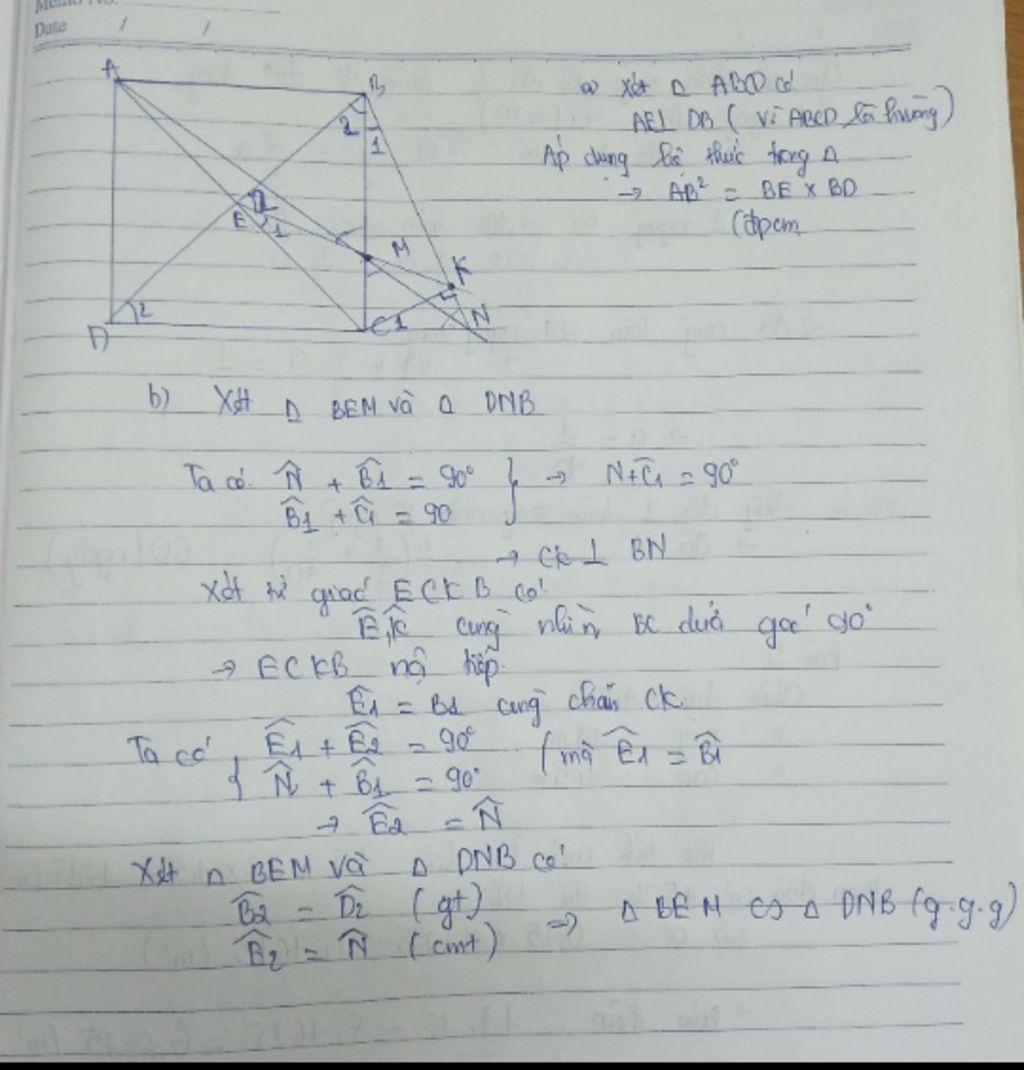 Memo No.
Date / /
A
B
2
1
E
2
1
M
K
D
2
C
1
N
a) Xét Δ ABD có
AE⊥ DB ( Vì ABCD là hvuông)
Áp dụng hệ thức trong Δ
→ AB² = BE × BD
(đpcm
b) Xét Δ BEM và Δ DNB
Ta có N̂ + B̂1 = 90° } → N+Ĉ1 = 90°
B̂1 + Ĉ1 = 90
→ CK ⊥ BN
Xét tứ giác ECKB có
Ê,K̂ cùng nhìn BC dưới góc 90°
→ ECKB nội tiếp
Ê1 = B1 cùng chắn CK
Ta có { Ê1 + Ê2 = 90° (mà Ê1 = B̂1
N̂ + B̂1 = 90°
→ Ê2 = N̂
Xét Δ BEM và Δ DNB có
B̂2 = D̂2 (gt) => Δ BEM ∽ Δ DNB (g.g.g)
Ê2 = N̂ (cmt)